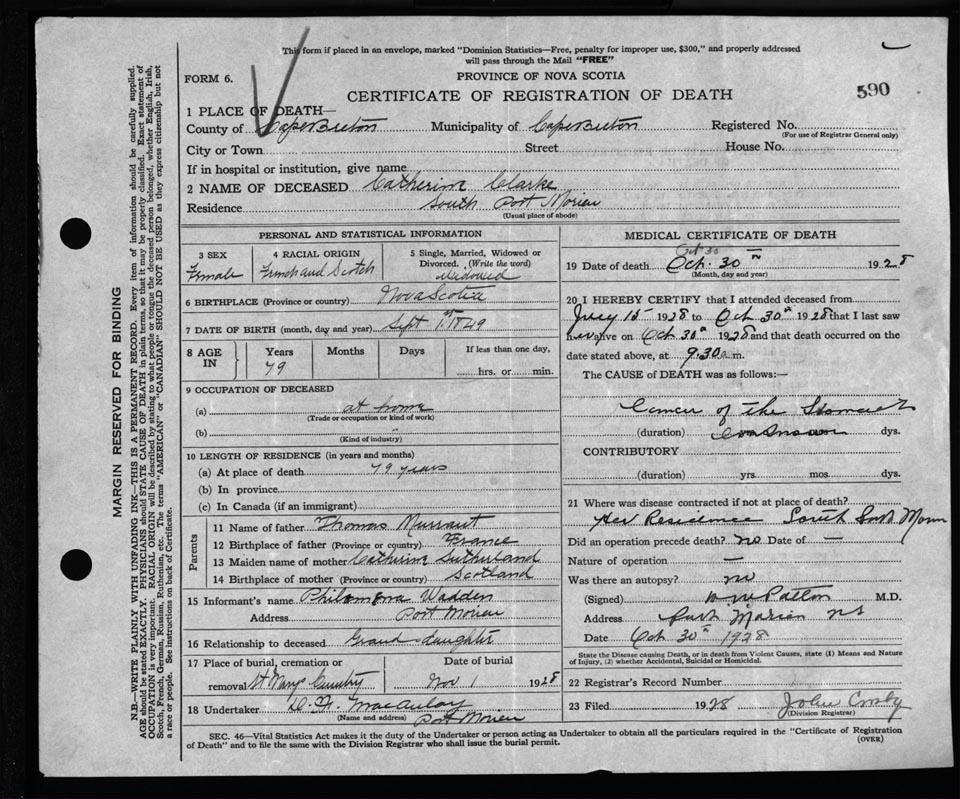 This form if placed in an envelope, marked "Dominion Statistics—Free, penalty for improper use, $300," and properly addressed
will pass through the Mail "FREE"
FORM 6.
PROVINCE OF NOVA SCOTIA
CERTIFICATE OF REGISTRATION OF DEATH
590
1 PLACE OF DEATH—
County of Cape Breton Municipality of Cape Breton Registered No.
(For use of Registrar General only)
City or Town Street House No.
If in hospital or institution, give name
2 NAME OF DECEASED Catherine Clarke
Residence South Port Morien
(Usual place of abode)
PERSONAL AND STATISTICAL INFORMATION
3 SEX
Female
4 RACIAL ORIGIN
French and Scotch
5 Single, Married, Widowed or
Divorced. (Write the word)
widowed
6 BIRTHPLACE (Province or country) Nova Scotia
7 DATE OF BIRTH (month, day and year) Sept 1st 1849
8 AGE IN
Years
79
Months
Days
If less than one day,
hrs. or min.
9 OCCUPATION OF DECEASED
(a) at home
(Trade or occupation or kind of work)
(b) "
(Kind of industry)
10 LENGTH OF RESIDENCE (in years and months)
(a) At place of death 79 years
(b) In province
(c) In Canada (if an immigrant)
Parents
11 Name of father Thomas Murrant
12 Birthplace of father (Province or country) France
13 Maiden name of mother Catherine Sutherland
14 Birthplace of mother (Province or country) Scotland
15 Informant's name Philomena Wadden
Address Port Morien
16 Relationship to deceased Grand daughter
17 Place of burial, cremation or
removal St Marys Cemetry
Date of burial
Nov 1 1928
18 Undertaker MacAulay
(Name and address) Port Morien
MEDICAL CERTIFICATE OF DEATH
Oct 30
19 Date of death Oct. 30th 1928
(Month, day and year)
20 I HEREBY CERTIFY that I attended deceased from
July 15 1928 to Oct 30th 1928 that I last saw
her alive on Oct 30th 1928 and that death occurred on the
date stated above, at 9.30 a.m.
The CAUSE of DEATH was as follows:—
Cancer of the Stomach
(duration) dys.
CONTRIBUTORY
(duration) yrs. mos. dys.
21 Where was disease contracted if not at place of death?
Her Residence South Port Morien
Did an operation precede death? no Date of —
Nature of operation —
Was there an autopsy? no
(Signed) Patton M.D.
Address Port Morien NS
Date Oct 30th 1928
State the Disease causing Death, or in death from Violent Causes, state (1) Means and Nature
of Injury, (2) whether Accidental, Suicidal or Homicidal.
22 Registrar's Record Number
23 Filed 1928 John Crosby
(Division Registrar)
SEC. 46—Vital Statistics Act makes it the duty of the Undertaker or person acting as Undertaker to obtain all the particulars required in the "Certificate of Registration
of Death" and to file the same with the Division Registrar who shall issue the burial permit.
(OVER)
MARGIN RESERVED FOR BINDING
N.B.—WRITE PLAINLY WITH UNFADING INK—THIS IS A PERMANENT RECORD. Every item of information should be carefully supplied.
AGE should be stated EXACTLY. PHYSICIANS should STATE CAUSE OF DEATH in plain terms, so that it may be properly classified. Exact statement of
OCCUPATION is very important. RACIAL ORIGIN will be described by stating to what people or tongue the deceased person belonged, whether English, Irish,
Scotch, French, German, Russian, Ruthenian, etc. The terms "AMERICAN" or "CANADIAN" SHOULD NOT BE USED as they express citizenship but not
a race or people. See instructions on back of Certificate.